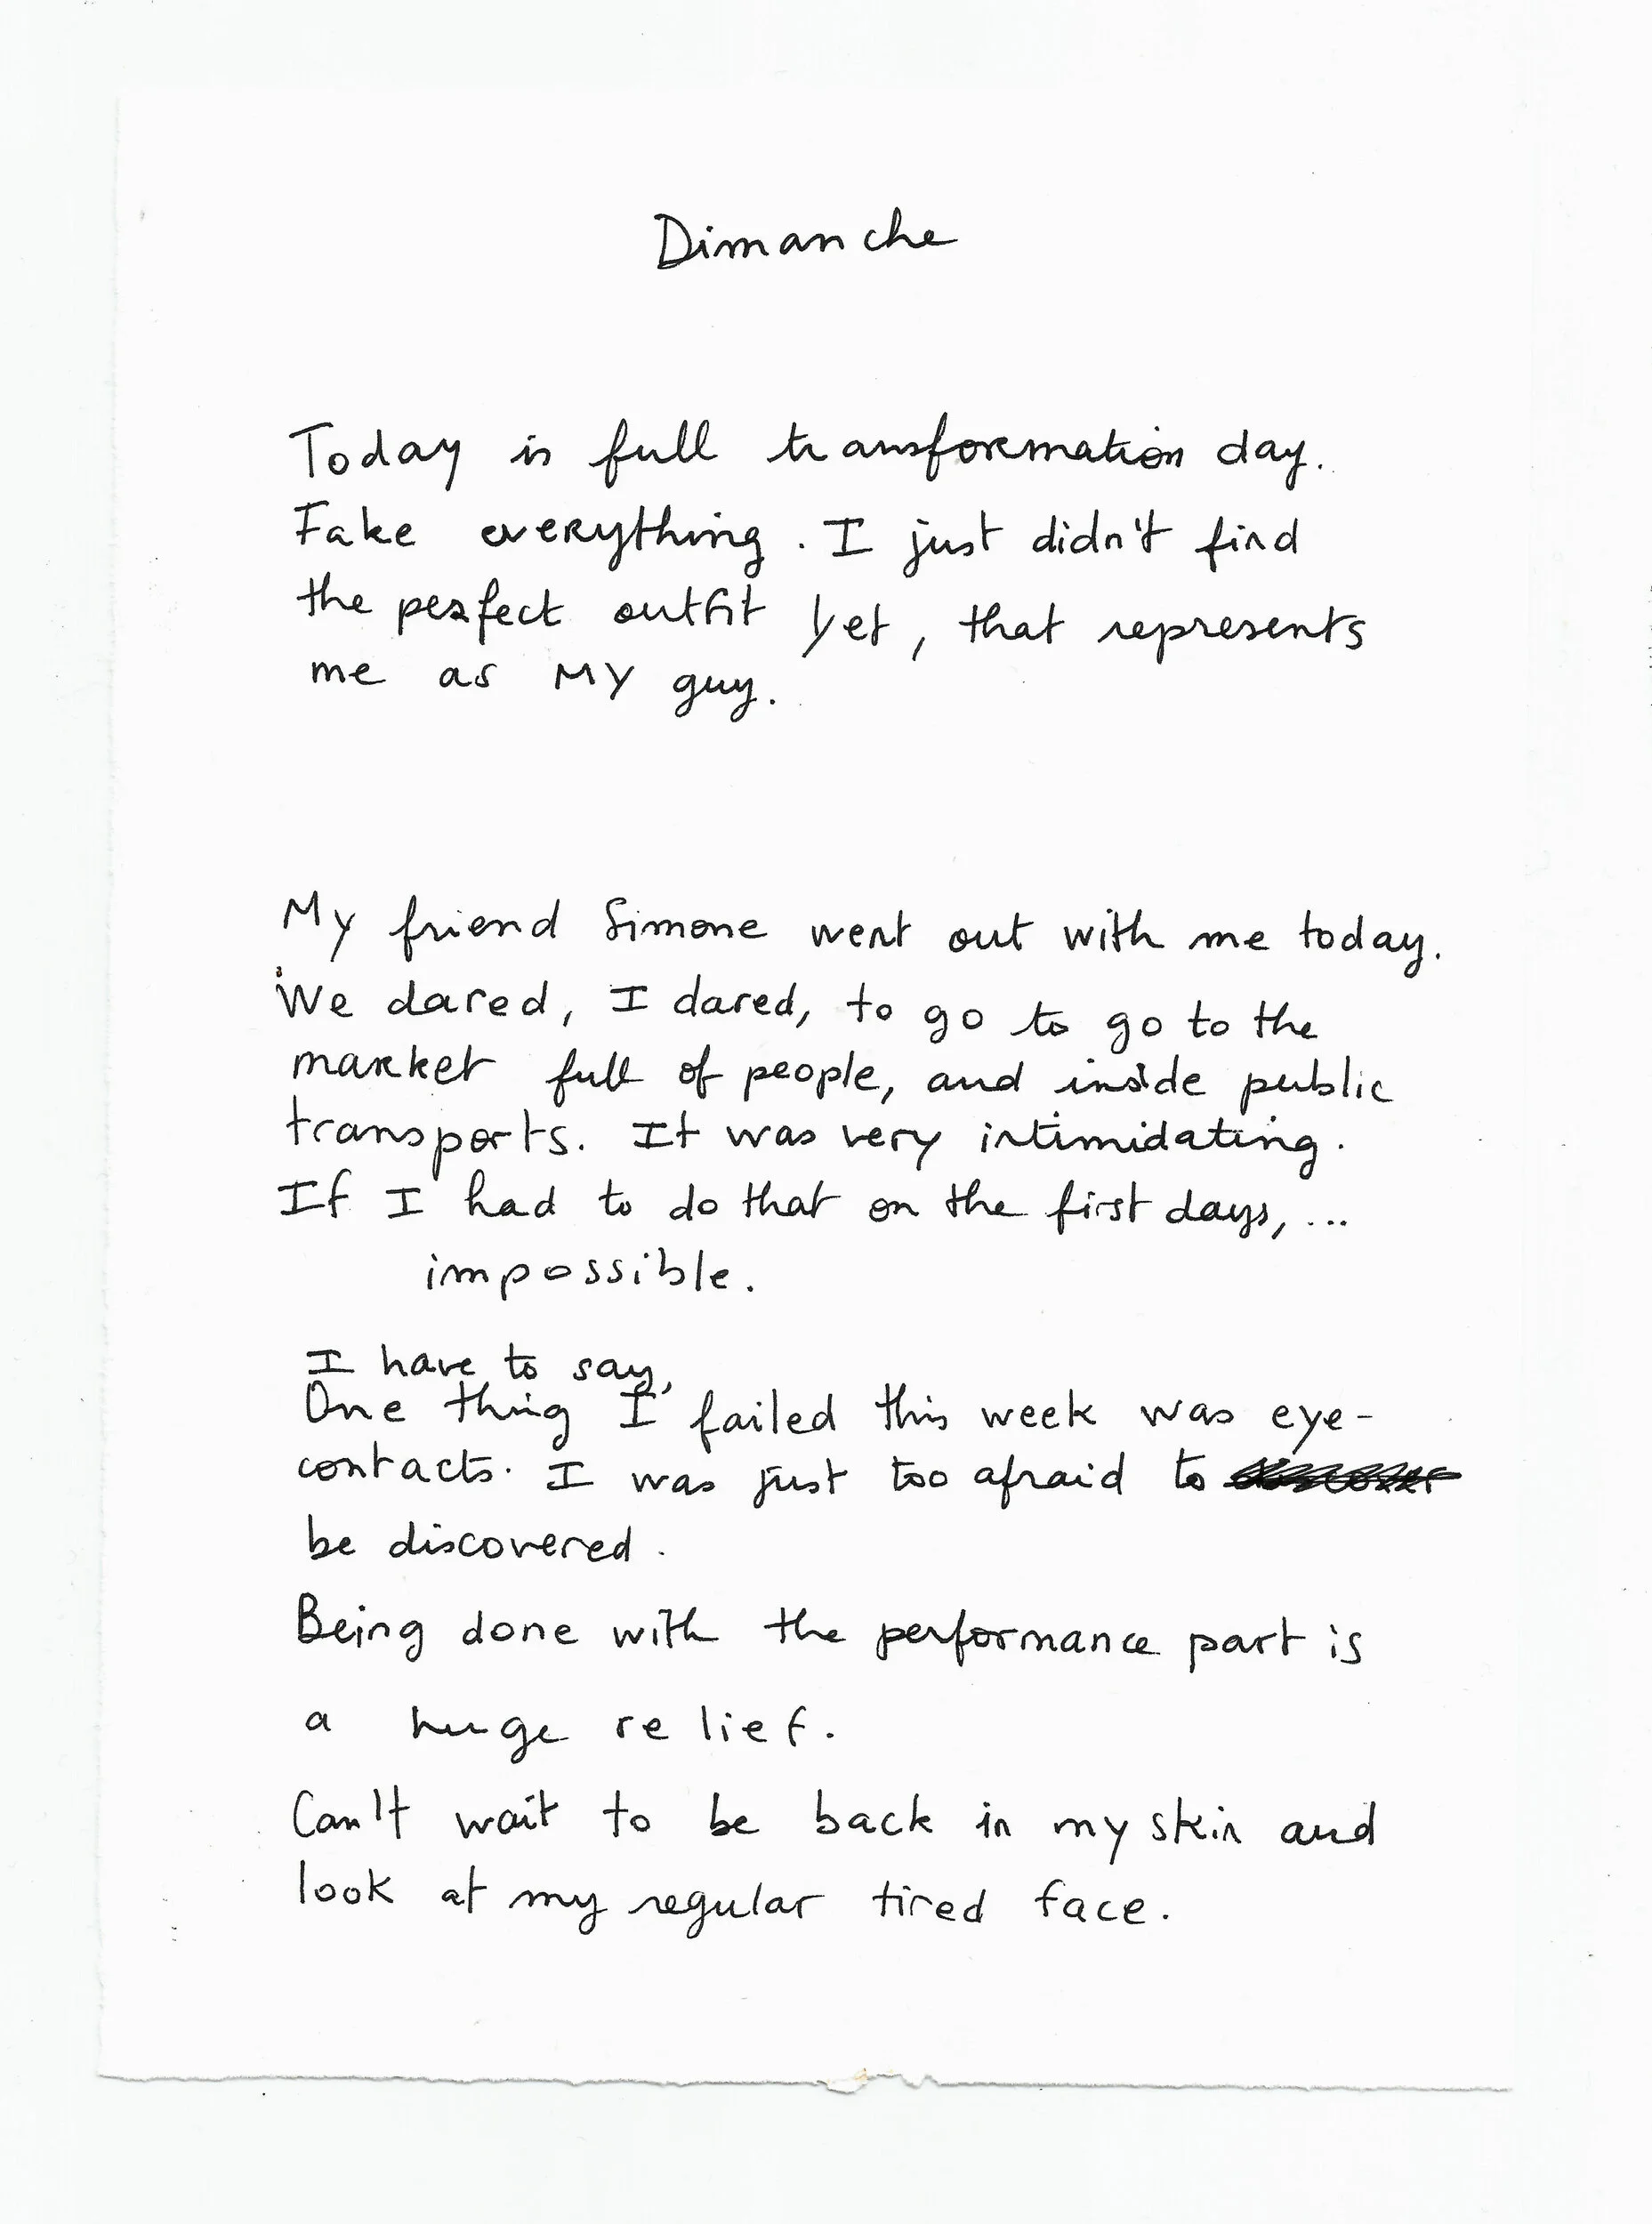 Dimanche
Today is full transformation day.
Fake everything. I just didn't find
the perfect outfit yet, that represents
me as MY guy.
My friend Simone went out with me today.
We dared, I dared, to go to go to the
market full of people, and inside public
transports. It was very intimidating.
If I had to do that on the first days, ...
impossible.
I have to say,
One thing I failed this week was eye-
contacts. I was just too afraid to
be discovered.
Being done with the performance part is
a huge relief.
Can't wait to be back in my skin and
look at my regular tired face.